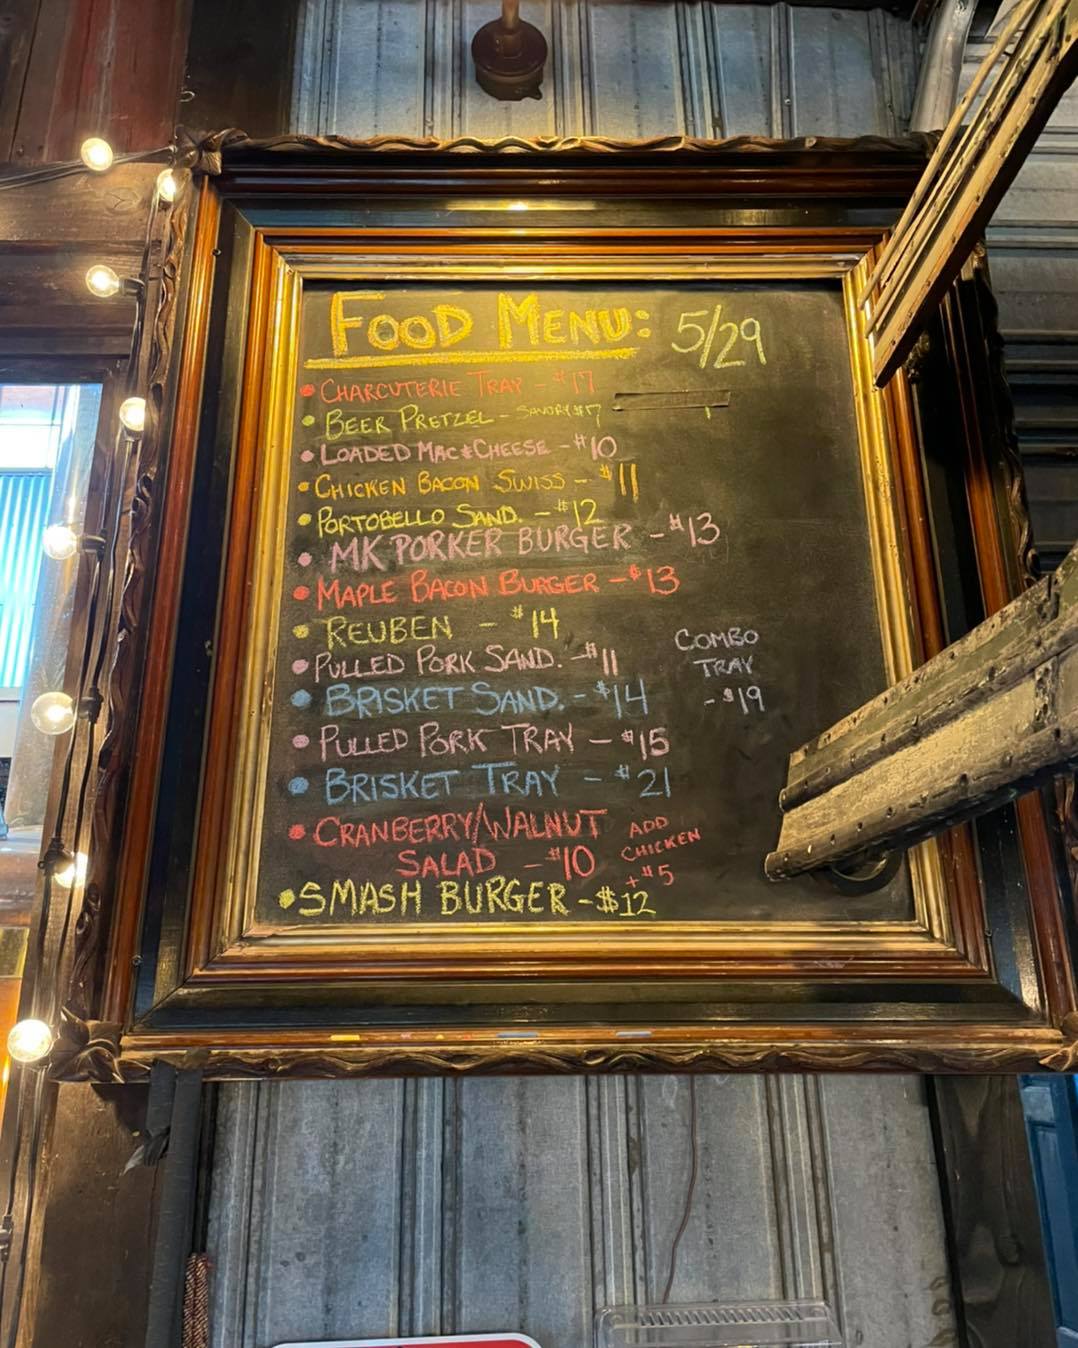 FOOD MENU: 5/29
• CHARCUTERIE TRAY - $17
• BEER PRETZEL - SAVORY $7
• LOADED MAC & CHEESE - $10
• CHICKEN BACON SWISS - $11
• PORTOBELLO SAND. - $12
• MK PORKER BURGER - $13
• MAPLE BACON BURGER - $13
• REUBEN - $14
• PULLED PORK SAND. - $11
• BRISKET SAND. - $14
COMBO
TRAY
- $19
• PULLED PORK TRAY - $15
• BRISKET TRAY - $21
• CRANBERRY/WALNUT
SALAD - $10
ADD
CHICKEN
+ $5
• SMASH BURGER - $12